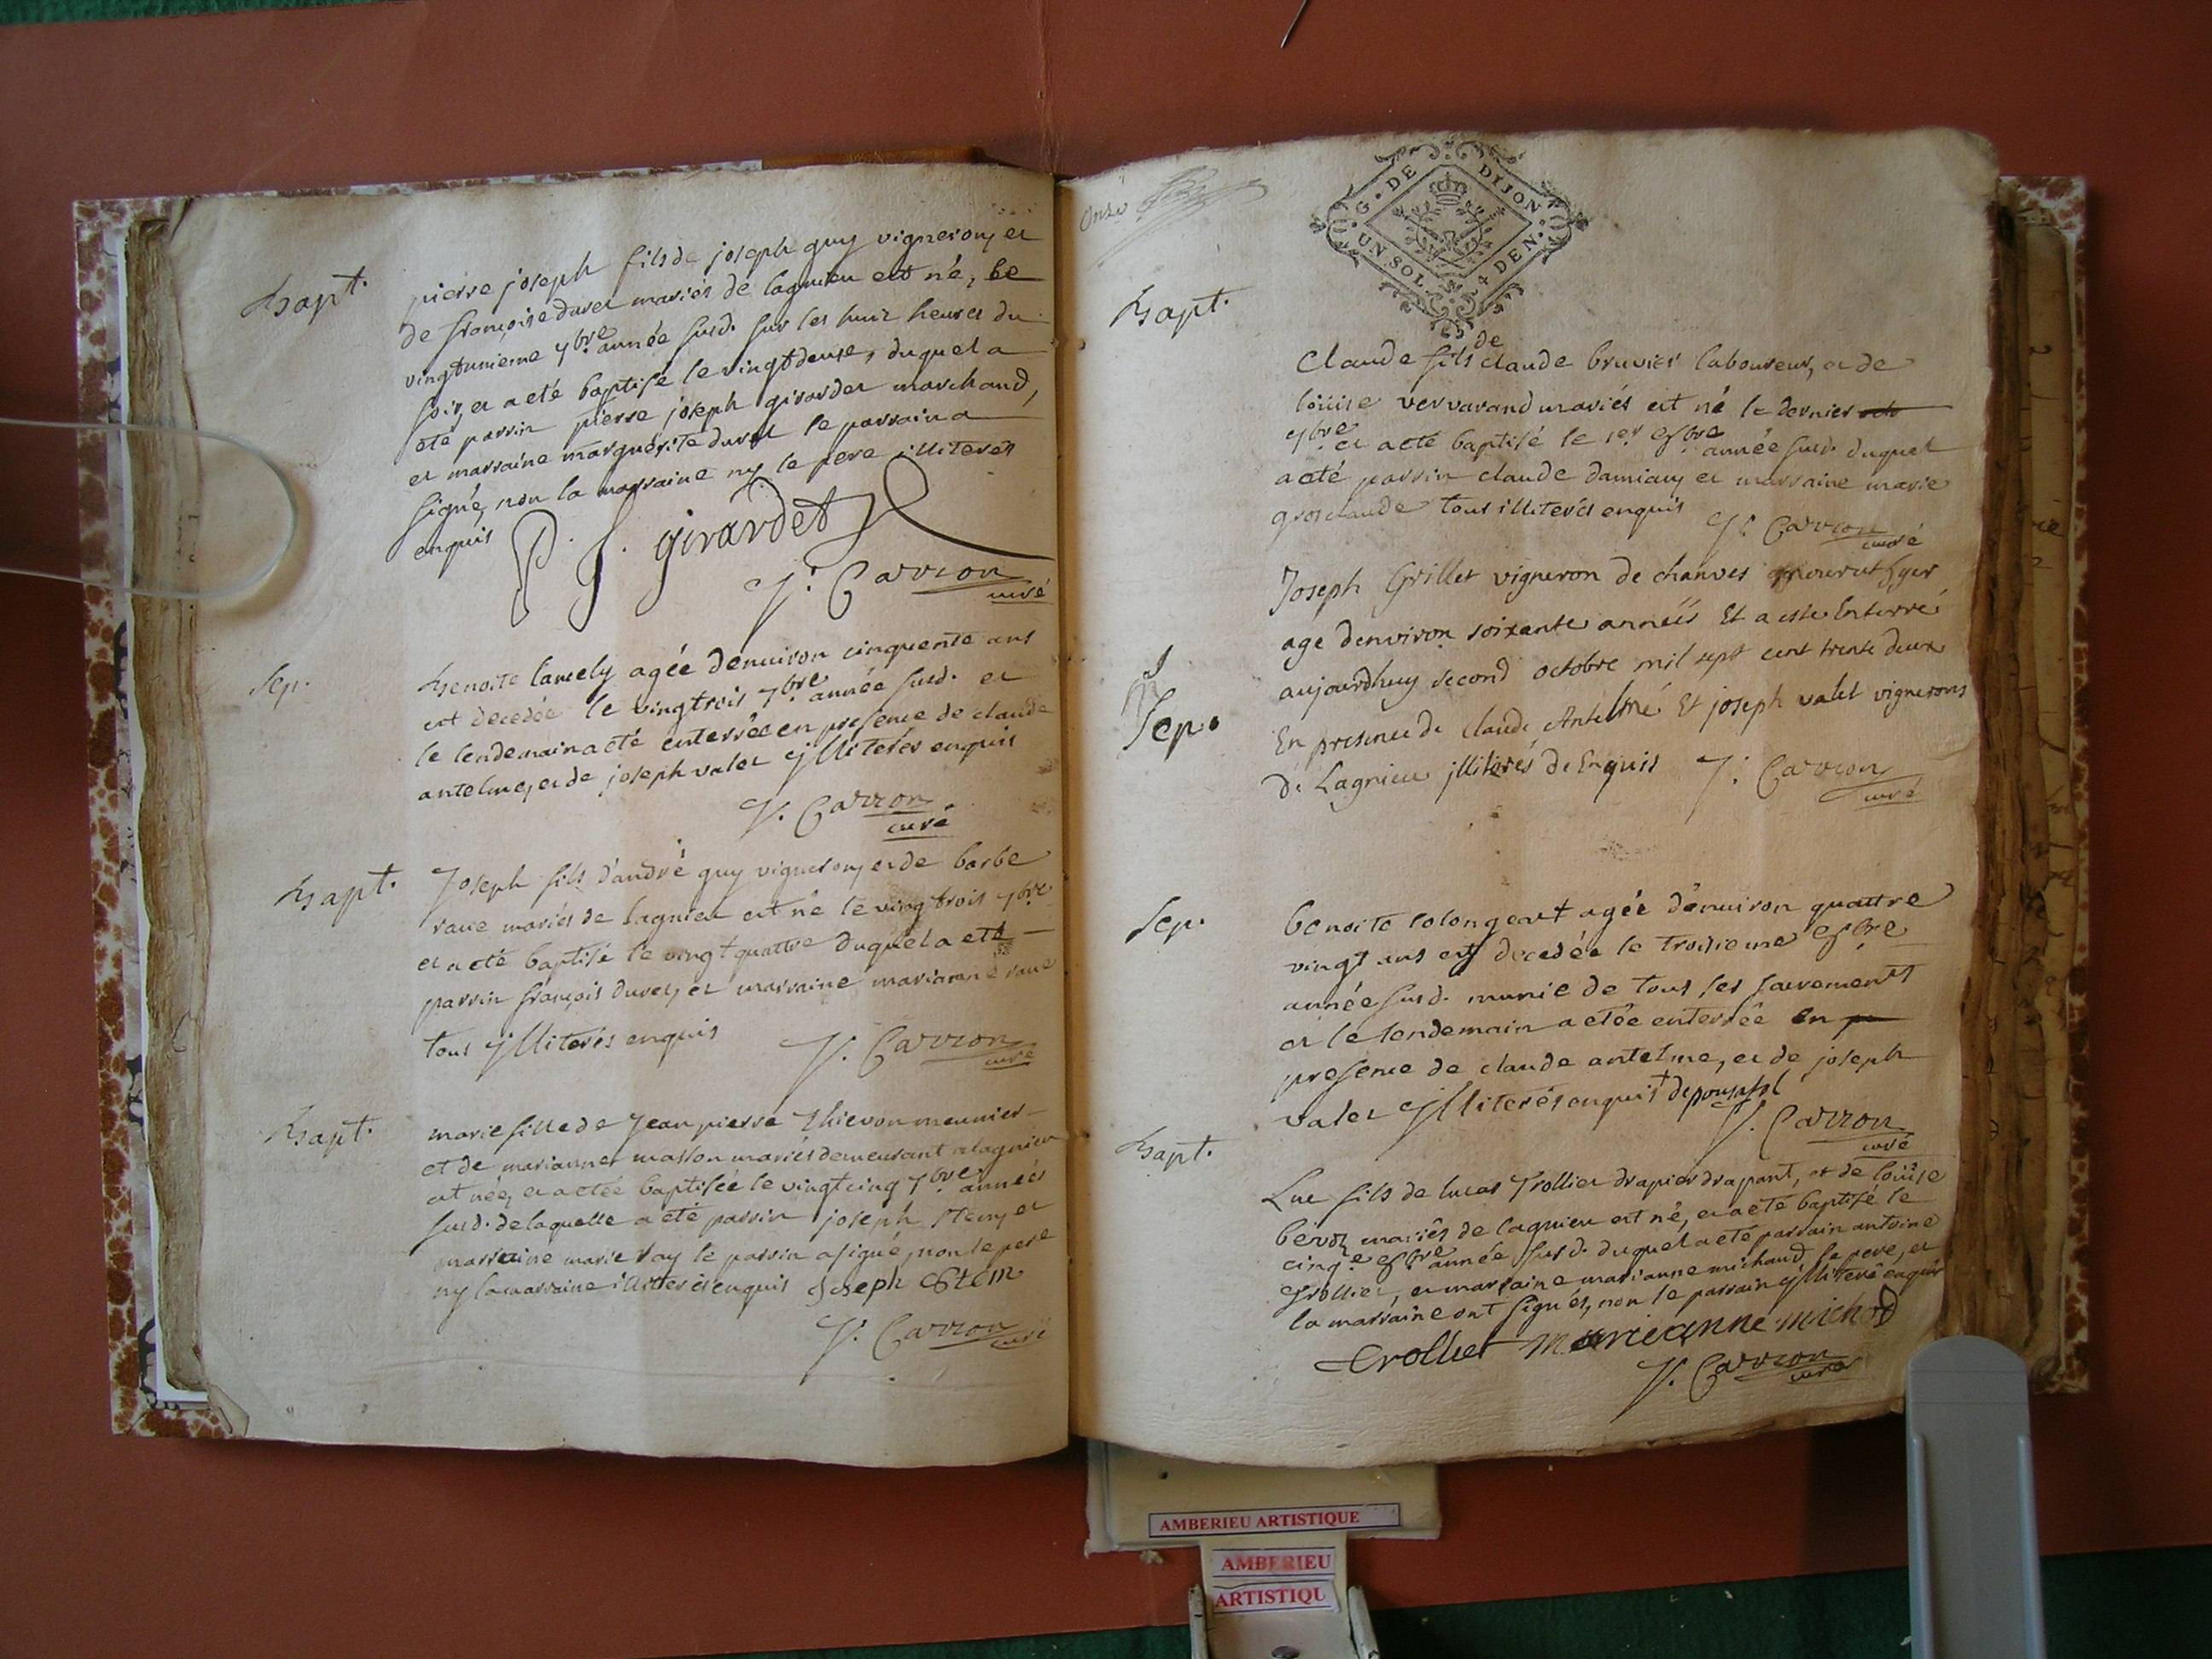 bapt.
pierre joseph fils de joseph guy vigneron, et
de françoise duret mariés de lagnieu est né, le
vingtunieme 7bre année susd. sur les huit heures du
soir, et a eté baptisé le vingtdeuse, duquel a
eté parrin pierre joseph girardet marchand,
et marraine marguerite duret le parrain a
signé, non la marraine ny le pere illiterés
enquis P. J. girardet
J. Carron
curé
Sep.
benoite lancely agée d'enuiron cinquente ans
est decedée le vingtrois 7bre année susd. et
le lendemain a eté enterrée en presence de claude
antelme, et de joseph valet jlliterés enquis
J. Carron
curé
bapt.
Joseph fils d'andré guy vigneron, et de barbe
raue mariés de lagnieu est né le vingtrois 7bre
et a eté baptisé le vingt quattre duquel a eté
parrin françois duret, et marraine mariane raue
tous jlliterés enquis J. Carron
curé
bapt.
marie fille de Jean pierre Thievon meunier
et de marianne masson mariés demeurant a lagnieu
est née, et a etée baptisée le vingt cinq 7bre année
susd. de laquelle a eté parrin joseph Stem, et
marraine marie Ray le parrin a signé, non le pere
ny la marraine illiterés enquis Joseph Stem
J. Carron curé
Onze
G. DE DIJON
UN SOL 4 DEN.
bapt.
de
Claude fils claude bruvier laboureur, et de
loüise vervarand mariés est né le dernier
7bre et a eté baptisé le 1er 8bre année susd. duquel
a eté parrin claude damian, et marraine marie
grosclaude tous illiterés enquis J. Carron
curé
Sep.
Joseph Grillet vigneron de chanves mourut hyer
age denviron soixante années Et a este Enterré
aujourdhuy second octobre mil sept cent trente deux
En presence de Claude Antelme Et joseph valet vignerons
de Lagnieu jlliterés de Enquis J. Carron
curé
Sep.
benoite colongeat agée d'enuiron quattre
vingt ans est decedée le troisieme 8bre
année susd. munie de tous ses sacrements
et le lendemain a etée enterrée en
presence de claude antelme, et de joseph
valet jlliterés enquis
J. Carron
curé
bapt.
Luc fils de lucas Trollier drapier drapant, et de loüise
bevoz mariés de lagnieu est né, et a eté baptisé le
cinq.e 8bre année susd. duquel a eté parrain antoine
Trollier, et marraine marianne michaud le pere, et
la marraine ont signés, non le parrain jlliteré enquis
trolliet marieanne michod
J. Carron
curé
AMBERIEU ARTISTIQUE
AMBERIEU
ARTISTIQU